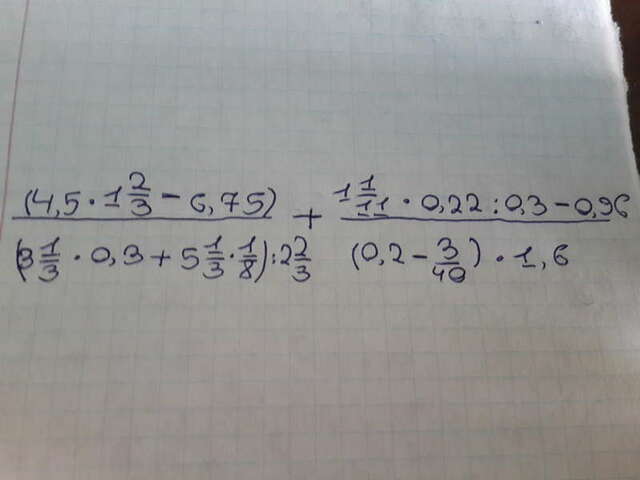 (4,5 · 1 2/3 − 6,75) / (3 1/3 · 0,3 + 5 1/3 · 1/8) : 2 2/3 + 1 1/11 · 0,22 : 0,3 − 0,96 / (0,2 − 3/40) · 1,6